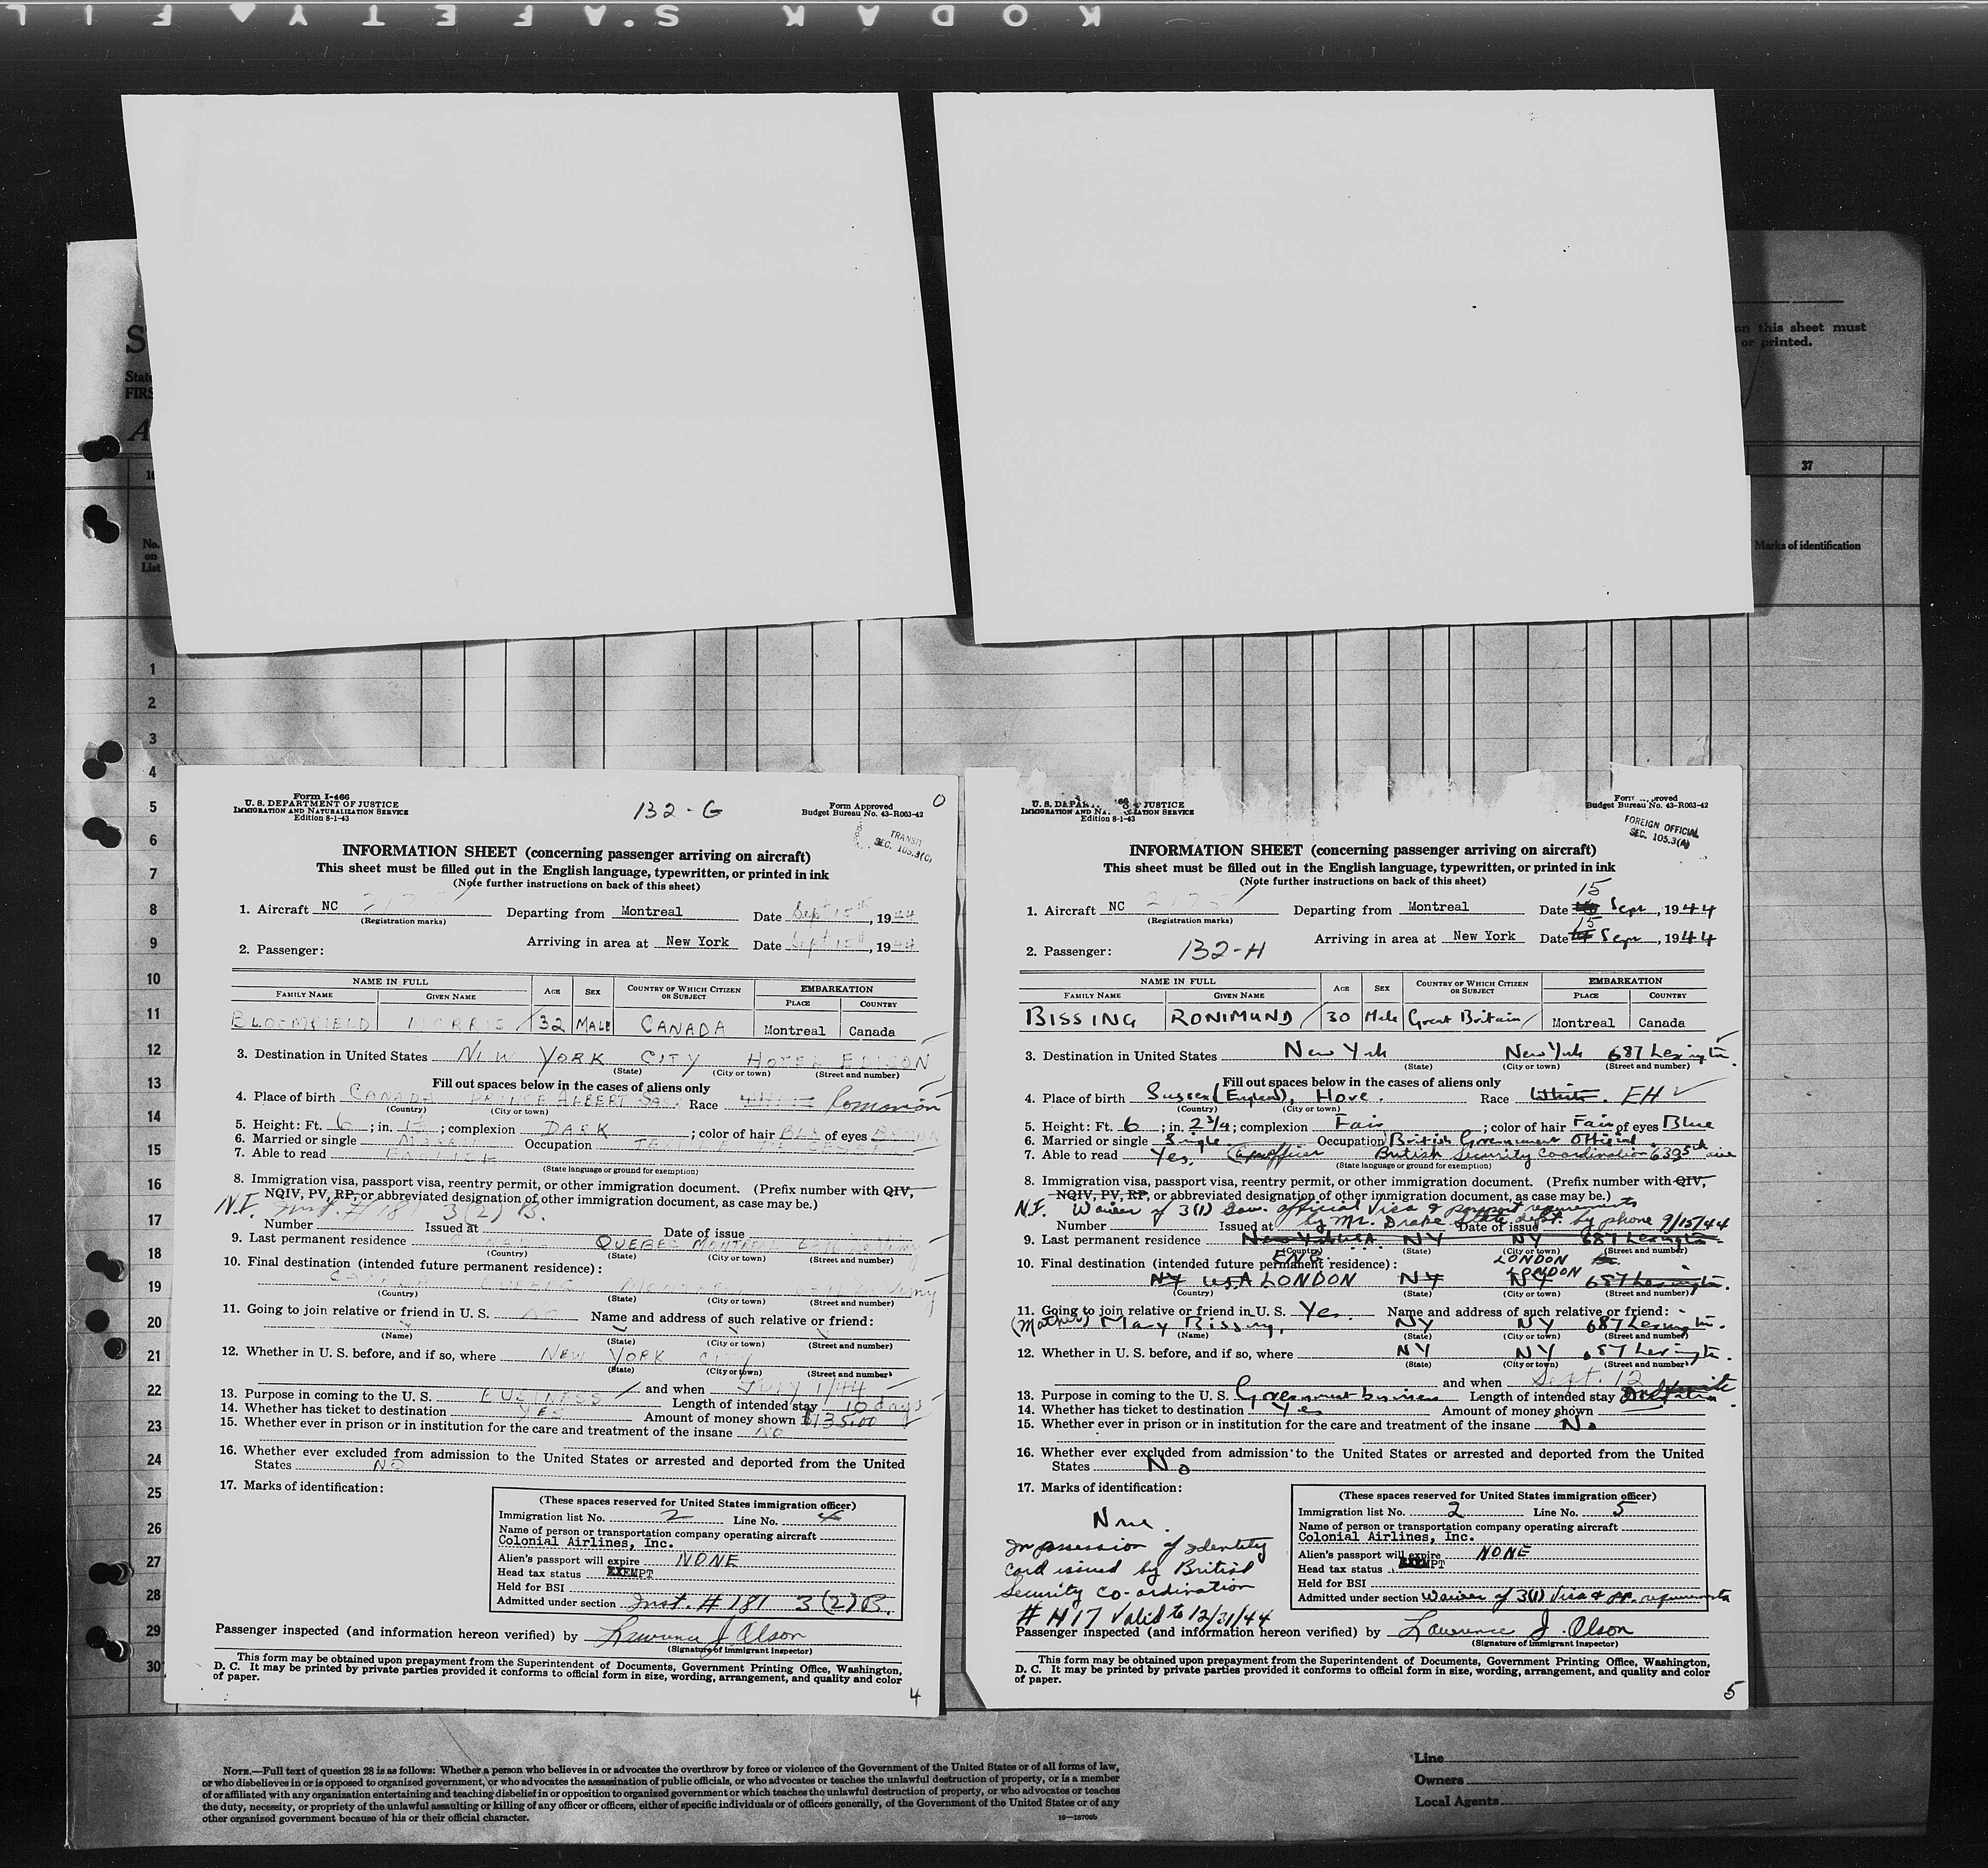 KODAK SAFETY FILM
on this sheet must
or printed.
37
No.
on
List
Marks of identification
1
2
3
4
5
6
7
8
9
10
11
12
13
14
15
16
17
18
19
20
21
22
23
24
25
26
27
28
29
30
Form I-466
U. S. DEPARTMENT OF JUSTICE
IMMIGRATION AND NATURALIZATION SERVICE
Edition 8-1-43
132-G
Form Approved
Budget Bureau No. 43-R063-42
TRANSIT
SEC. 105.3(C)
INFORMATION SHEET (concerning passenger arriving on aircraft)
This sheet must be filled out in the English language, typewritten, or printed in ink
(Note further instructions on back of this sheet)
1. Aircraft NC Departing from Montreal Date Sept 15th, 1944
(Registration marks)
Arriving in area at New York Date Sept 15th, 1944
2. Passenger:
NAME IN FULL AGE SEX COUNTRY OF WHICH CITIZEN OR SUBJECT EMBARKATION
FAMILY NAME GIVEN NAME PLACE COUNTRY
BLOOMFIELD MORRIS 32 MALE CANADA Montreal Canada
3. Destination in United States NEW YORK CITY HOTEL EDISON
(State) (City or town) (Street and number)
Fill out spaces below in the cases of aliens only
4. Place of birth CANADA PRINCE ALBERT SASK Race WHITE Romanian
(Country) (City or town)
5. Height: Ft. 6; in. ; complexion DARK; color of hair BLK of eyes BROWN
6. Married or single Occupation
7. Able to read ENGLISH
(State language or ground for exemption)
8. Immigration visa, passport visa, reentry permit, or other immigration document. (Prefix number with QIV,
NQIV, PV, RP, or abbreviated designation of other immigration document, as case may be.)
N.I. Inst. # 181 3(2) B.
Number Issued at Date of issue
9. Last permanent residence CANADA QUEBEC MONTREAL
(Country) (State) (City or town) (Street and number)
10. Final destination (intended future permanent residence):
CANADA QUEBEC MONTREAL
(Country) (State) (City or town) (Street and number)
11. Going to join relative or friend in U. S. NO Name and address of such relative or friend:
(Name) (State) (City or town) (Street and number)
12. Whether in U. S. before, and if so, where NEW YORK CITY
(State) (City or town) (Street and number)
and when JULY 1/44
13. Purpose in coming to the U. S. BUSINESS Length of intended stay 10 days
14. Whether has ticket to destination YES Amount of money shown $135.00
15. Whether ever in prison or in institution for the care and treatment of the insane NO
16. Whether ever excluded from admission to the United States or arrested and deported from the United
States NO
17. Marks of identification:
(These spaces reserved for United States immigration officer)
Immigration list No. 2 Line No. 4
Name of person or transportation company operating aircraft
Colonial Airlines, Inc.
Alien's passport will expire NONE
Head tax status EXEMPT
Held for BSI
Admitted under section Inst. # 181 3(2)B.
Passenger inspected (and information hereon verified) by Lawrence J. Olson
(Signature of immigrant inspector)
This form may be obtained upon prepayment from the Superintendent of Documents, Government Printing Office, Washington,
D. C. It may be printed by private parties provided it conforms to official form in size, wording, arrangement, and quality and color
of paper.
4
U. S. DEPARTMENT OF JUSTICE
IMMIGRATION AND NATURALIZATION SERVICE
Edition 8-1-43
Form Approved
Budget Bureau No. 43-R063-42
FOREIGN OFFICIAL
SEC. 105.3(A)
INFORMATION SHEET (concerning passenger arriving on aircraft)
This sheet must be filled out in the English language, typewritten, or printed in ink
(Note further instructions on back of this sheet)
1. Aircraft NC Departing from Montreal Date 15 Sepr, 1944
(Registration marks)
Arriving in area at New York Date 15 Sepr, 1944
2. Passenger: 132-H
NAME IN FULL AGE SEX COUNTRY OF WHICH CITIZEN OR SUBJECT EMBARKATION
FAMILY NAME GIVEN NAME PLACE COUNTRY
BISSING RONIMUND 30 Male Great Britain Montreal Canada
3. Destination in United States New York New York 687 Lexington
(State) (City or town) (Street and number)
Fill out spaces below in the cases of aliens only
4. Place of birth Sussex (England), Hove. Race White. EH
(Country) (City or town)
5. Height: Ft. 6; in. 2 3/4; complexion Fair; color of hair Fair of eyes Blue
6. Married or single Single. Occupation British Government Official
7. Able to read Yes. British Security Coordination 630 5th ave
(State language or ground for exemption)
8. Immigration visa, passport visa, reentry permit, or other immigration document. (Prefix number with QIV,
NQIV, PV, RP, or abbreviated designation of other immigration document, as case may be.)
N.I. Waiver of 3(1) Gov. official Visa & passport requirements
by Mr. Drake State dept. by phone 9/15/44
Number Issued at Date of issue
9. Last permanent residence New York USA NY NY 687 Lexington
(Country) (State) (City or town) (Street and number)
ENG. LONDON
10. Final destination (intended future permanent residence): LONDON
NY USA LONDON NY NY 687 Lexington.
(Country) (State) (City or town) (Street and number)
11. Going to join relative or friend in U. S. Yes. Name and address of such relative or friend:
(Mother) Mary Bissing, NY NY 687 Lexington.
(Name) (State) (City or town) (Street and number)
12. Whether in U. S. before, and if so, where NY NY 687 Lexington.
(State) (City or town) (Street and number)
and when Sept. 12
13. Purpose in coming to the U. S. Government business Length of intended stay
14. Whether has ticket to destination Yes Amount of money shown
15. Whether ever in prison or in institution for the care and treatment of the insane No
16. Whether ever excluded from admission to the United States or arrested and deported from the United
States No
17. Marks of identification:
None.
In possession of identity
card issued by British
Security Co-ordination
# H17 Valid to 12/31/44
(These spaces reserved for United States immigration officer)
Immigration list No. 2 Line No. 5
Name of person or transportation company operating aircraft
Colonial Airlines, Inc.
Alien's passport will expire NONE
Head tax status EXEMPT
Held for BSI
Admitted under section Waiver of 3(1) Visa & pp. requirements
Passenger inspected (and information hereon verified) by Lawrence J. Olson
(Signature of immigrant inspector)
This form may be obtained upon prepayment from the Superintendent of Documents, Government Printing Office, Washington,
D. C. It may be printed by private parties provided it conforms to official form in size, wording, arrangement, and quality and color
of paper.
5
NOTE.—Full text of question 28 is as follows: Whether a person who believes in or advocates the overthrow by force or violence of the Government of the United States or of all forms of law,
or who disbelieves in or is opposed to organized government, or who advocates the assassination of public officials, or who advocates or teaches the unlawful destruction of property, or is a member
of or affiliated with any organization entertaining and teaching disbelief in or opposition to organized government or which teaches the unlawful destruction of property, or who advocates or teaches
the duty, necessity, or propriety of the unlawful assaulting or killing of any officer or officers, either of specific individuals or of officers generally, of the Government of the United States or of any
other organized government because of his or their official character.
16—18709b
Line
Owners
Local Agents